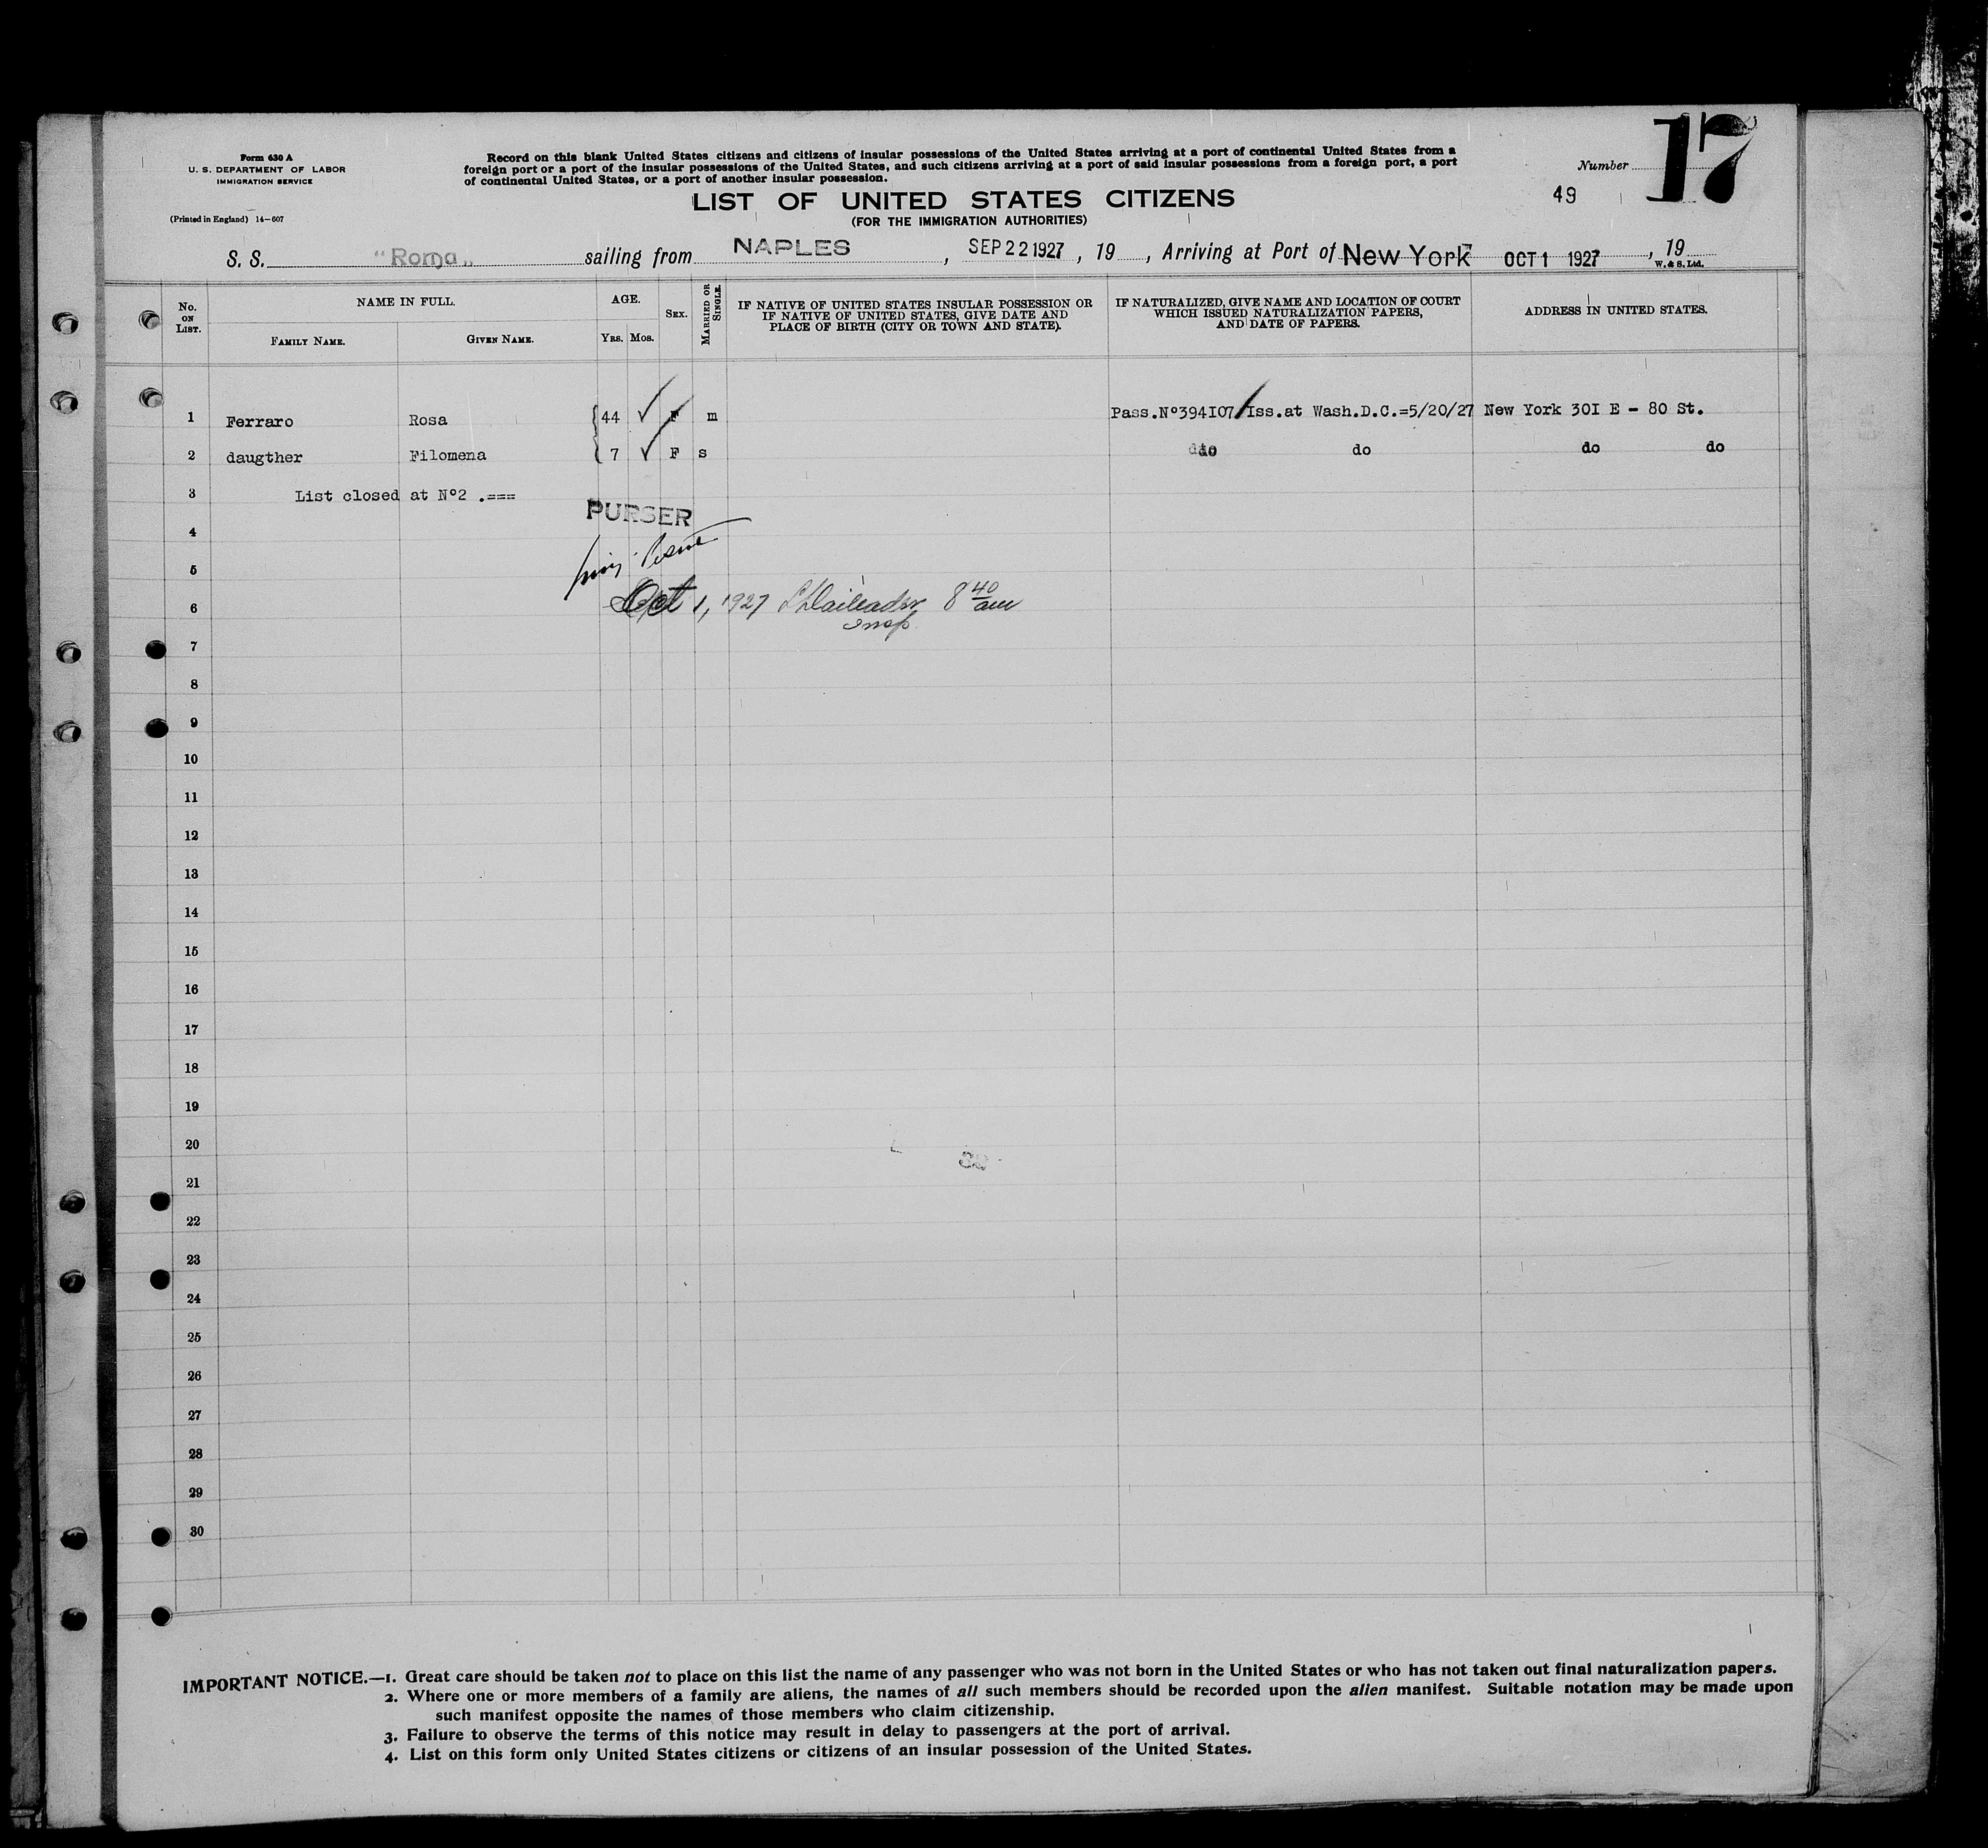 17
Form 630 A
U. S. DEPARTMENT OF LABOR
IMMIGRATION SERVICE
(Printed in England) 14—607
Record on this blank United States citizens and citizens of insular possessions of the United States arriving at a port of continental United States from a
foreign port or a port of the insular possessions of the United States, and such citizens arriving at a port of said insular possessions from a foreign port, a port
of continental United States, or a port of another insular possession.
Number
49
LIST OF UNITED STATES CITIZENS
(FOR THE IMMIGRATION AUTHORITIES)
S. S. "Roma" sailing from NAPLES, SEP 22 1927, 19, Arriving at Port of New York OCT 1 1927, 19
W. & S. Ltd.
No. ON LIST.
NAME IN FULL.
FAMILY NAME.
GIVEN NAME.
AGE.
YRS. MOS.
SEX.
MARRIED OR SINGLE.
IF NATIVE OF UNITED STATES INSULAR POSSESSION OR
IF NATIVE OF UNITED STATES, GIVE DATE AND
PLACE OF BIRTH (CITY OR TOWN AND STATE).
IF NATURALIZED, GIVE NAME AND LOCATION OF COURT
WHICH ISSUED NATURALIZATION PAPERS,
AND DATE OF PAPERS.
ADDRESS IN UNITED STATES.
1 Ferraro Rosa 44 ✓ F m Pass.Nº394I07/Iss.at Wash.D.C.=5/20/27 New York 30I E - 80 St.
2 daugther Filomena 7 ✓ F s do do do do
3 List closed at Nº2 .===
PURSER
4
5
6 Oct 1, 1927 8 40 am
Insp.
7
8
9
10
11
12
13
14
15
16
17
18
19
20
32
21
22
23
24
25
26
27
28
29
30
IMPORTANT NOTICE.—1. Great care should be taken not to place on this list the name of any passenger who was not born in the United States or who has not taken out final naturalization papers.
2. Where one or more members of a family are aliens, the names of all such members should be recorded upon the alien manifest. Suitable notation may be made upon
such manifest opposite the names of those members who claim citizenship.
3. Failure to observe the terms of this notice may result in delay to passengers at the port of arrival.
4. List on this form only United States citizens or citizens of an insular possession of the United States.